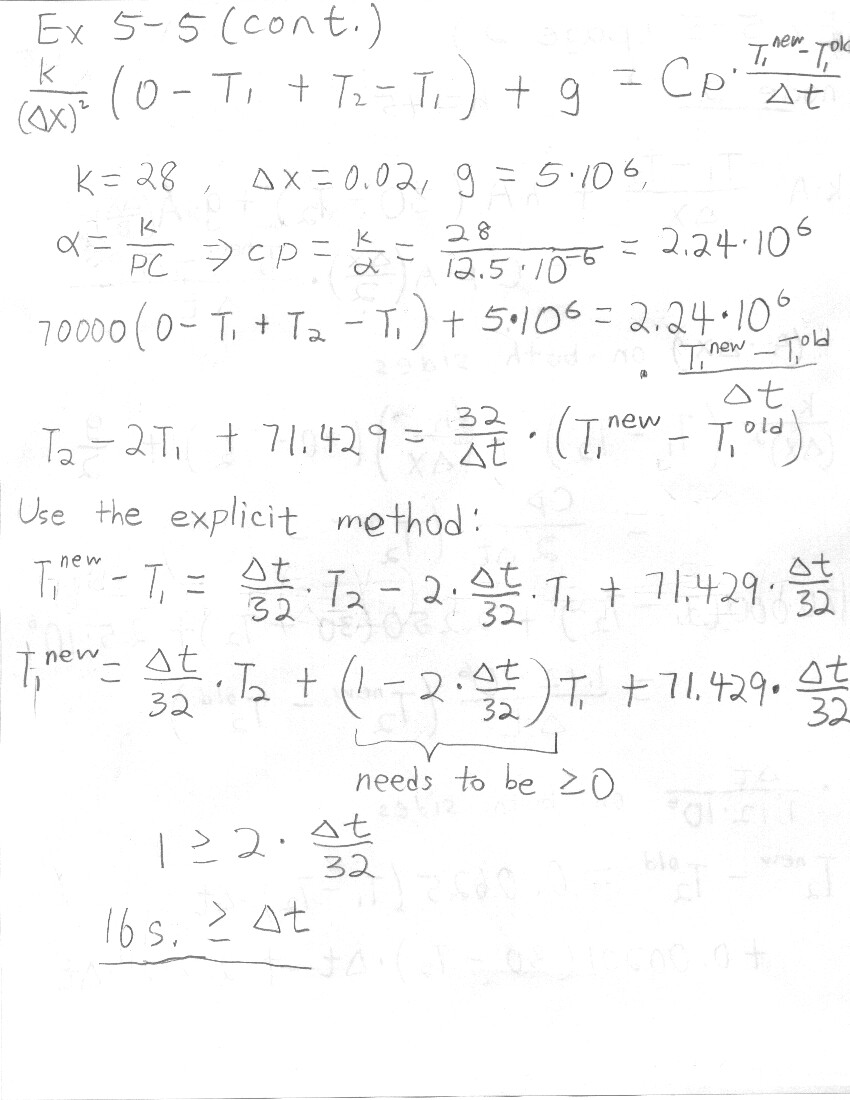 Ex 5-5 (cont.)
k/(Δx)² (0 - T₁ + T₂ - T₁) + g = Cρ · (T₁ⁿᵉʷ - T₁ᵒˡᵈ)/Δt
k = 28 , Δx = 0.02, g = 5·10⁶,
α = k/ρC ⇒ cρ = k/α = 28/(12.5·10⁻⁶) = 2.24·10⁶
70000(0 - T₁ + T₂ - T₁) + 5·10⁶ = 2.24·10⁶
· (T₁ⁿᵉʷ - T₁ᵒˡᵈ)/Δt
T₂ - 2T₁ + 71.429 = 32/Δt · (T₁ⁿᵉʷ - T₁ᵒˡᵈ)
Use the explicit method:
T₁ⁿᵉʷ - T₁ = Δt/32 · T₂ - 2 · Δt/32 · T₁ + 71.429 · Δt/32
T₁ⁿᵉʷ = Δt/32 · T₂ + (1 - 2 · Δt/32)T₁ + 71.429 · Δt/32
needs to be ≥0
1 ≥ 2 · Δt/32
16 s. ≥ Δt